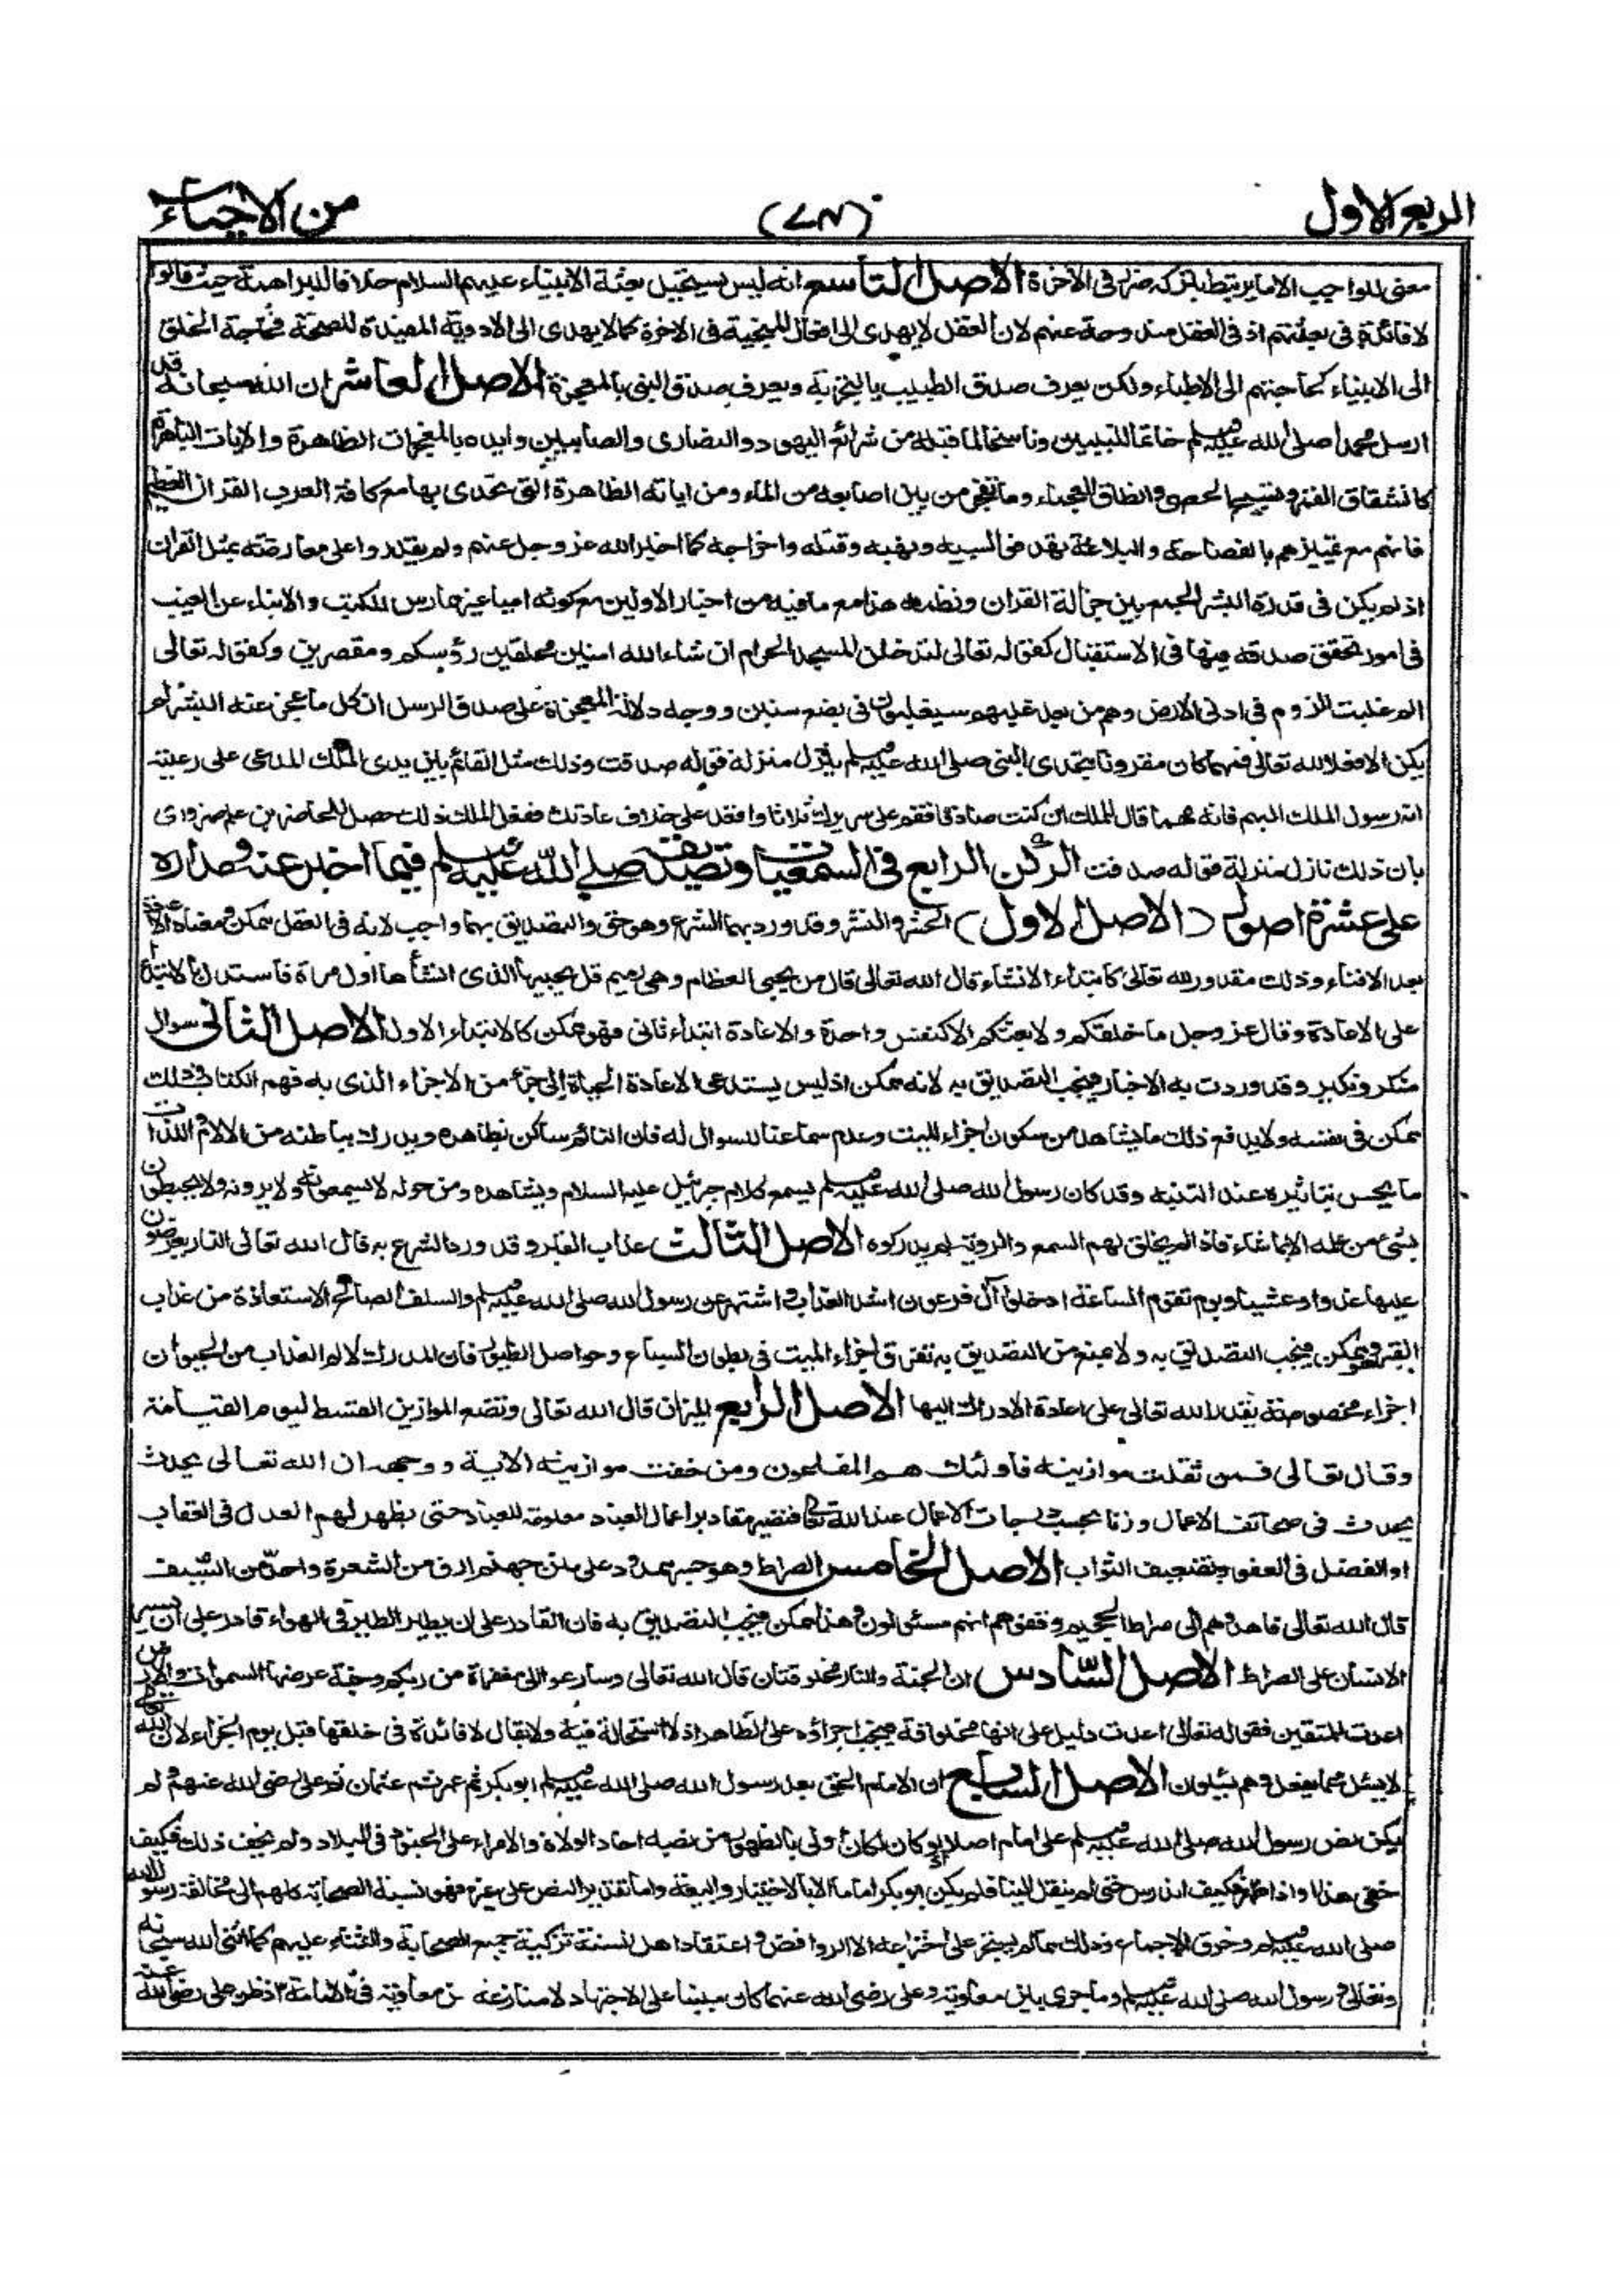 الربع الاول (٧٨) من الاحياء
معنى للواجب الا ما يرتبط بتركه ضرر فى الآخرة الاصل التاسع انه ليس يستحيل بعثة الانبياء عليهم السلام خلافا للبراهمة حيث قالوا
لا فائدة فى بعثتهم اذ فى العقل مندوحة عنهم لان العقل لا يهدى الى افعال المنجية فى الاخرة كما لا يهدى الى الادوية المفيدة للصحة فحاجة الخلق
الى الانبياء كحاجتهم الى الاطباء ولكن يعرف صدق الطبيب بالتجربة ويعرف صدق النبى بالمعجزة الاصل العاشر ان الله سبحانه قد
ارسل محمدا صلى الله عليه وسلم خاتما للنبيين وناسخا لما قبله من شرائع اليهود والنصارى والصابيين وايده بالمعجزات الظاهرة والايات الباهرة
كانشقاق القمر وتسبيح الحصى وانطاق العجماء وما تفجر من بين اصابعه من الماء ومن اياته الظاهرة التى تحدى بها مع كافة العرب القران العظيم
فانهم مع تميزهم بالفصاحة والبلاغة تهدفوا لسبيه ونهبه وقتله واخراجه كما اخبر الله عز وجل عنهم ولم يقدروا على معارضته بمثل القران
اذ لم يكن فى قدرة البشر الجمع بين جزالة القران ونظمه هذا مع ما فيه من اخبار الاولين مع كونه اميا غير ممارس للكتب والانباء عن الغيب
فى امور تحقق صدقه فيها فى الاستقبال كقوله تعالى لتدخلن المسجد الحرام ان شاء الله امنين محلقين رؤسكم ومقصرين وكقوله تعالى
الم غلبت الروم فى ادنى الارض وهم من بعد غلبهم سيغلبون فى بضع سنين ووجه دلالة المعجزة على صدق الرسل ان كل ما عجز عنه البشر لم
يكن الا فعلا لله تعالى فمهما كان مقرونا بتحدى النبى صلى الله عليه وسلم ينزل منزلة قوله صدقت وذلك مثل القائم بين يدى الملك المدعى على رعيته
انه رسول الملك اليهم فانه مهما قال للملك ان كنت صادقا فقم على سريرك ثلاثا واقعد على خلاف عادتك ففعل الملك ذلك حصل للحاضرين علم ضرورى
بان ذلك نازل منزلة قوله صدقت الركن الرابع فى السمعيات وتصديقه صلى الله عليه وسلم فيما اخبر عنه ومداره
على عشرة اصول (الاصل الاول) الحشر والنشر وقد ورد بهما الشرع وهو حق والتصديق بهما واجب لانه فى العقل ممكن ومعناه الاعادة
بعد الافناء وذلك مقدور لله تعالى كابتداء الانشاء قال الله تعالى قال من يحيى العظام وهى رميم قل يحييها الذى انشأها اول مرة فاستدل بالابتداء
على الاعادة وقال عز وجل ما خلقكم ولا بعثكم الا كنفس واحدة والاعادة ابتداء ثانى فهو ممكن كالابتداء الاول الاصل الثانى سوال
منكر ونكير وقد وردت به الاخبار فيجب التصديق به لانه ممكن اذ ليس يستدعى الا اعادة الحياة الى جزء من الاجزاء الذى به فهم الخطاب وذلك
ممكن فى نفسه ولا يدفع ذلك ما يشاهد من سكون اجزاء الميت وعدم سماعنا للسوال له فان النائم ساكن بظاهره ويدرك بباطنه من الالام واللذات
ما يحس بتاثيره عند التنبه وقد كان رسول الله صلى الله عليه وسلم يسمع كلام جبرئيل عليه السلام ويشاهده ومن حوله لا يسمعونه ولا يرونه ولا يحيطون
بشئ من علمه الا بما شاء فاذا لم يخلق لهم السمع والروية لم يدركوه الاصل الثالث عذاب القبر وقد ورد الشرع به قال الله تعالى النار يعرضون
عليها غدوا وعشيا ويوم تقوم الساعة ادخلوا آل فرعون اشد العذاب واشتهر عن رسول الله صلى الله عليه وسلم والسلف الصالح الاستعاذة من عذاب
القبر وهو ممكن فيجب التصديق به ولا يمنع من التصديق به تفرق اجزاء الميت فى بطون السباع وحواصل الطيور فان المدرك لالم العذاب من الحيوان
اجزاء مخصوصة يقدر الله تعالى على اعادة الادراك اليها الاصل الرابع الميزان قال الله تعالى ونضع الموازين القسط ليوم القيامة
وقال تعالى فمن ثقلت موازينه فاولئك هم المفلحون ومن خفت موازينه الاية ووجهه ان الله تعالى يحدث
يحدث فى صحائف الاعمال وزنا بحسب درجات الاعمال عند الله تعالى فتصير مقادير اعمال العباد معلومة للعباد حتى يظهر لهم العدل فى العقاب
او الفضل فى العفو وتضعيف الثواب الاصل الخامس الصراط وهو جسر ممدود على متن جهنم ادق من الشعرة واحد من السيف
قال الله تعالى فاهدوهم الى صراط الجحيم وقفوهم انهم مسئولون وهذا ممكن فيجب التصديق به فان القادر على ان يطير الطير فى الهواء قادر على ان يسير
الانسان على الصراط الاصل السادس ان الجنة والنار مخلوقتان قال الله تعالى وسارعوا الى مغفرة من ربكم وجنة عرضها السموات والارض
اعدت للمتقين فقوله تعالى اعدت دليل على انها مخلوقة فيجب اجراؤه على الظاهر اذ لا استحالة فيه ولا يقال لا فائدة فى خلقها قبل يوم الجزاء لان الله تعالى
لا يسئل عما يفعل وهم يسئلون الاصل السابع ان الامام الحق بعد رسول الله صلى الله عليه وسلم ابو بكر ثم عمر ثم عثمان ثم على رضى الله عنهم ولم
يكن نص رسول الله صلى الله عليه وسلم على امام اصلا ولو كان لكان اولى بالظهور من نصبه احاد الولاة والامراء على الجنود فى البلاد ولم يخف ذلك فكيف
خفى هذا واذا ظهر فكيف اندرس حتى لم ينقل الينا فلم يكن ابو بكر اماما الا بالاختيار والبيعة واما تقدير النص على غيره فهو نسبة الصحابة كلهم الى مخالفة رسول الله
صلى الله عليه وسلم وخرق الاجماع وذلك مما لم يستجر على اختراعه الا الروافض واعتقاد اهل السنة تزكية جميع الصحابة والثناء عليهم كما اثنى الله سبحانه
وتعالى ورسول الله صلى الله عليه وسلم وما جرى بين معاوية وعلى رضى الله عنهما كان مبنيا على الاجتهاد لا منازعة من معاوية فى الامامة اذ ظن على رضى الله عنه